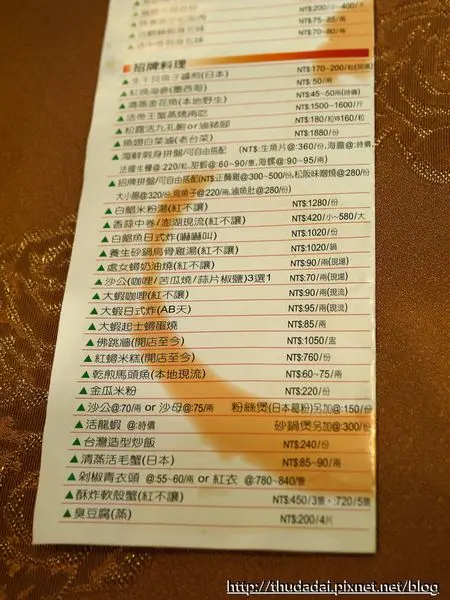 NT$:200/小~400/大
NT$:75~85/兩
NT$:70~80/兩
招牌料理
▲生干貝魚子醬煎(日本) NT$:170~200/粒(現場)
▲紅燒海參(墨西哥) NT$:50/兩
▲清蒸金花魚(本地野生) NT$:45~50/兩(時價)
▲活帝王蟹蒸烤兩吃 NT$:1500~1600/斤
▲松露活九孔鮑or滷豬腳 NT$:180/粒 時160/粒
▲魚翅白菜滷(老台菜) NT$:1880/份
▲海鮮刺身拼盤/可自由搭配 (NT$:生魚片@:360/份, 海膽@:時價,
法國生蠔@:220/粒, 甜蝦@:60~90/隻, 海螺@:90~95/兩)
▲招牌拼盤/可自由搭配(NT$:正醃蟹@:300~500/份, 松阪味噌燒@:280/份
大小腸@:320/份, 烏魚子@:220/兩, 滷魚肚@:280/份)
▲白鯧米粉湯(紅不讓) NT$:1280/份
▲香蒜中卷/澎湖現流(紅不讓) NT$:420/小~580/大
▲白鯧魚日式炸(嚇嚇叫) NT$:1020/份
▲養生砂鍋烏骨雞湯(紅不讓) NT$:1020/鍋
▲處女蟳奶油燒(紅不讓) NT$:90/兩(現場)
▲沙公(咖哩/苦瓜燒/蒜片椒鹽)3選1 NT$:70/兩(現場)
▲大蝦咖哩(紅不讓) NT$:90/兩(現流)
▲大蝦日式炸(AB天) NT$:95/兩(現流)
▲大蝦起士蟳蛋燒 NT$:85/兩
▲佛跳牆(開店至今) NT$:1050/盅
▲紅蟳米糕(開店至今) NT$:760/份
▲乾煎馬頭魚(本地現流) NT$:60~75/兩
▲金瓜米粉 NT$:220/份
▲沙公@:70/兩 or 沙母@:75/兩 粉絲煲(日本葛粉)另加@:150/份
▲活龍蝦 @:時價 砂鍋煲另加@:300/份
▲台灣造型炒飯 NT$:240/份
▲清蒸活毛蟹(日本) NT$:85~90/兩
▲剁椒青衣頭 @:55~60/兩 or 紅衣 @:780~840/隻
▲酥炸軟殼蟹(紅不讓) NT$:450/3隻、:720/5隻
▲臭豆腐(蒸) NT$:200/4片
http://thudadai.pixnet.net/blog